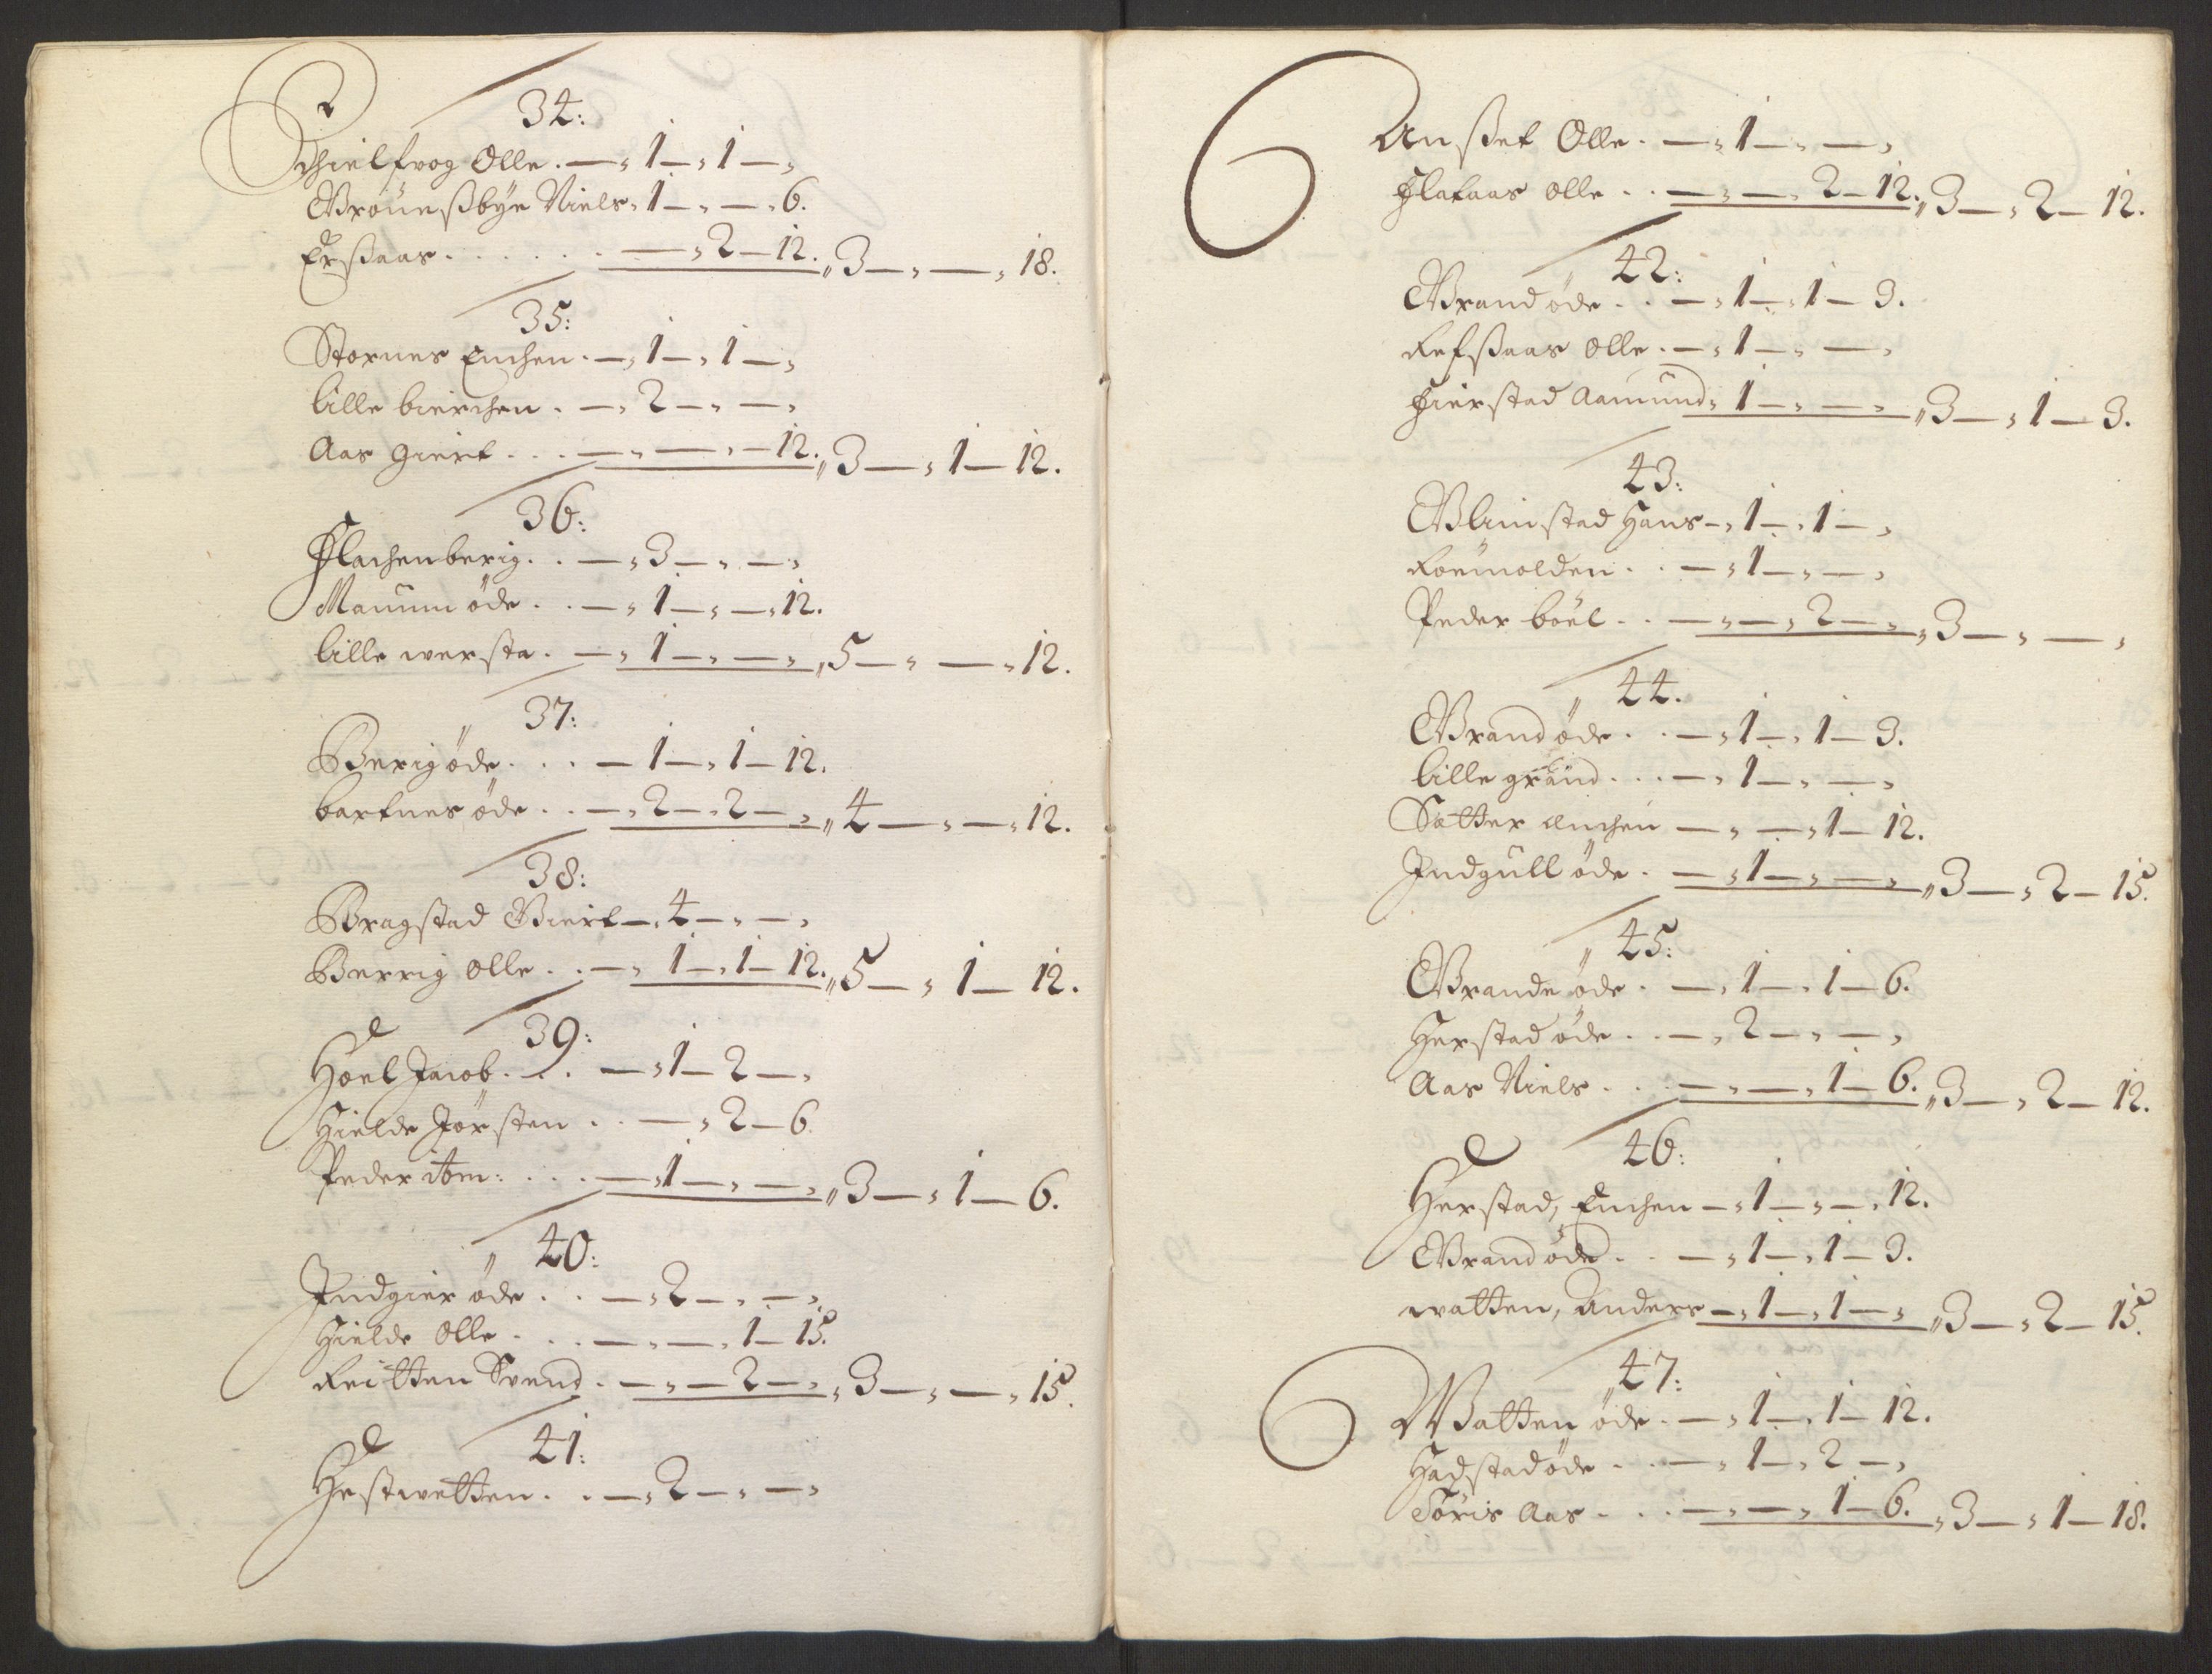 34:
Schielfrog Olle . — „ 1 — „ 1 — „
Gröneßbye Niels „ 1 — „ — „ 6.
Erßaas . . . . . . — „ 2 — 12. „ 3 — „ — „ 18.
35:
Stornes Enchen . — „ 1 — „ 1 — „
lille bierchen . — „ 2 — „ — „
Aas Giert . . . — „ — „ — 12. „ 3 — „ 1 — 12.
36:
Flachenberig . . — „ 3 — „ — „
Manum öde . . — „ 1 — „ — „ 12.
lille wersta . — „ 1 — „ — „ „ 5 — „ — „ 12.
37:
Berig öde . . . — 1 — „ 1 — 12.
bartnes öde . . — „ 2 — „ 2 — „ „ 4 — „ — „ 12.
38:
Bragstad Giert — „ 4 — „ — „
Berrig Olle . . — „ 1 — „ 1 — 12. „ 5 — „ 1 — 12.
39:
Hoel Jacob . . . — „ 1 — 2 — „
Hielde Jörsten . . — „ 2 — 6
Peder ibm: . . . — „ 1 — „ — „ „ 3 — „ 1 — 6.
40:
Indgier öde . . — „ 2 — „ — „
Hielde Olle . . . — „ — „ 1 — 15.
Reitten Svend . — „ — 2 — „ „ 3 — „ — „ 15.
41:
Hestwetten . . — „ 2 — „ — „
Anßet Olle . — „ 1 — „ — „
Flataas Olle . . — „ — „ 2 — 12. „ 3 — „ 2 — 12.
42:
Grand öde . . — „ 1 — „ 1 — 3.
Refßaas Olle . — „ 1 — „ — „
Fierstad Aamund „ 1 — „ — „ „ 3 — „ 1 — 3.
43:
Glimstad Hans — „ 1 — „ 1 — „
Roëmolden . . — „ 1 — „ — „
Peder boël . . — „ — „ 2 — „ „ 3 — „ — „
44.
Grand öde . . — „ 1 — „ 1 — 3.
lille grand . . . — „ 1 — „ — „
Sætter Enchen — „ — „ 1 — 12.
Indgull öde . — „ 1 — „ — „ „ 3 — „ 2 — 15.
45:
Grande öde . — „ 1 — „ 1 — 6.
Herstad öde . . — „ 2 — „ — „
Aas Niels . . . — „ — „ 1 — 6. „ 3 — „ 2 — 12.
46:
Herstad, Enchen — „ 1 — „ — „ 12.
Grand öde . . — „ 1 — „ 1 — 3.
watten, Anders — „ 1 — „ 1 — „ „ 3 — „ 2 — 15.
47:
Watten öde . — „ 1 — „ 1 — 12.
Hadstad öde . . — „ 1 — „ 2 — „
Töris Aas . . . — „ — „ 1 — 6. „ 3 — „ 1 — 18.